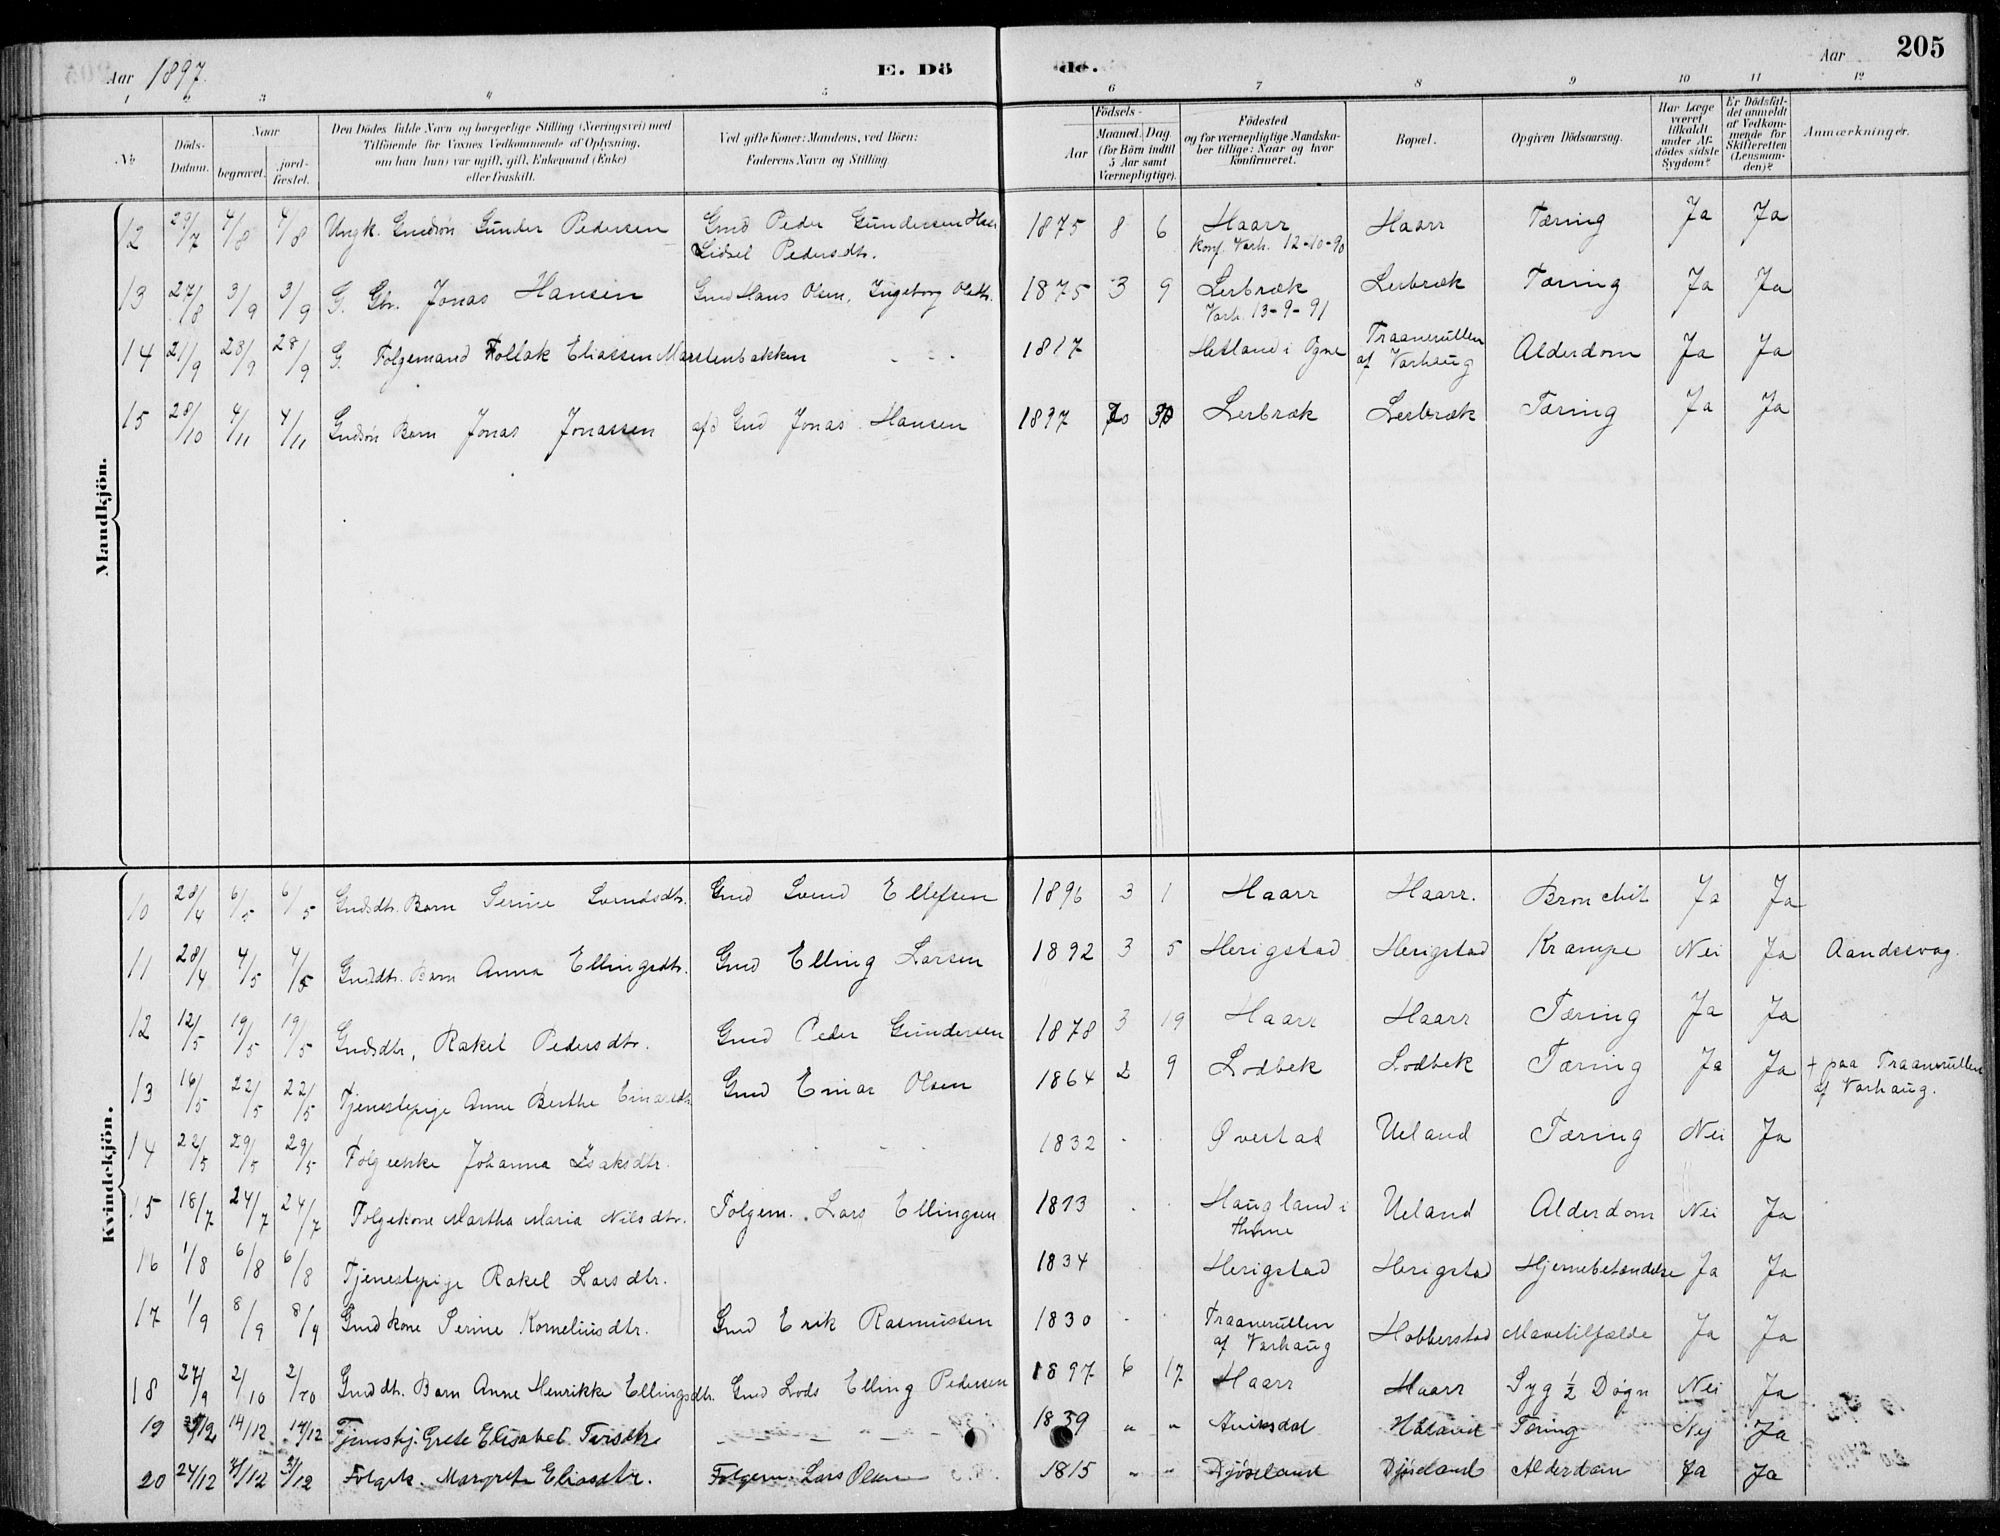 Aar 1897. E. Dö de. Aar 205
1 2 3 4 5 6 7 8 9 10 11 12
No. Döds-Datum. Naar begravet. jordfæstet. Den Dödes fulde Navn og borgerlige Stilling (Næringsvei) med Tilföiende for Voxnes Vedkommende af Oplysning, om han (hun) var ugift, gift, Enkemand (Enke) eller fraskilt. Ved gifte Koner: Mandens, ved Börn: Faderens Navn og Stilling. Födsels- Aar Maaned. Dag (for Börn indtil 5 Aar samt Værnepligtige). Födested og for værnepligtige Mandskaber tillige: Naar og hvor konfirmeret. Bopæl. Opgiven Dödsaarsag. Har Læge været tilkaldt under Afdödes sidste Sygdom? Er Dödsfaldet anmeldt af Vedkommende for Skifteretten (Lensmanden)? Anmærkninger.
Mandkjön.
12 29/7 4/8 4/8 Ungk. Gmdsön Gunder Pedersen Gmd Peder Gundersen Haar 1875 8 6 Haarr Haarr Tæring Ja Ja
Lidsel Pedersdtr. Konf. Varh. 12-10-90
13 27/8 3/9 3/9 G. Gbr. Jonas Hansen Gmd Hans Olsen, Ingeborg Olsdtr. 1875 3 9 Lerbræk Lerbræk Tæring Ja Ja
Varh. 13-9-91
14 21/9 28/9 28/9 G. Folgemand Tollak Eliassen Marstenbakken 1817 Hetland i Ogne Traanerullen af Varhaug Alderdom Ja Ja
15 28/10 4/11 4/11 Gmdsön Barn Jonas Jonassen afd Gmd Jonas Hansen 1897 Lerbræk Lerbræk Tæring Ja Ja
Kvindekjön.
10 28/4 6/5 6/5 Gmdsdtr. Barn Serine Svendsdtr. Gmd Svend Ellefsen 1896 3 1 Haarr Haarr. Bronchit Ja Ja
11 28/4 4/5 4/5 Gmddtr. Barn Anna Ellingsdtr. Gmd Elling Larsen 1892 3 5 Herigstad Herigstad Krampe Nei Ja Aandssvag.
12 12/5 19/5 19/5 Gmdsdtr, Rakel Pedersdtr. Gmd Peder Gundersen 1878 3 19 Haarr Haarr Tæring Ja Ja
13 16/5 22/5 22/5 Tjenestepige Anne Berthe Einarsdtr Gmd Einar Olsen 1864 2 9 Lodbek Lodbek Tæring Ja Ja + paa Traanerullen
af Varhaug.
14 22/5 29/5 29/5 Folgeenke Johanna Isaksdtr. 1832 Øvestad Ueland Tæring Nei Ja
15 18/7 24/7 24/7 Folgekone Martha Maria Nilsdtr. Folgem. Lars Ellingsen 1813 Haugland i Thime Ueland Alderdom Nei Ja
16 1/8 6/8 6/8 Tjenestepige Rakel Larsdtr. 1834 Herigstad Herigstad Hjernebetændelse Ja Ja
17 1/9 8/9 8/9 Gmdkone Serine Korneliusdtr. Gmd Erik Rasmussen 1830 Traanerullen af Varhaug Hobberstad Mavetilfælde Ja Ja
18 27/9 2/10 2/10 Gmddtr. Barn Anne Henrikke Ellingsdtr. Gmd Lods Elling Pedersen 1897 6 17 Haarr Haarr Syg ½ Døgn Nei Ja
19 14/12 14/12 Tjenestpj. Grete Elisabet 1839 " " Tæring Nej Ja
20 24/12 31/12 31/12 Folgek. Margrete Eliasdtr. Folgem. Lars Olsen 1815 " " Djöseland Djöseland Alderdom Ja Ja